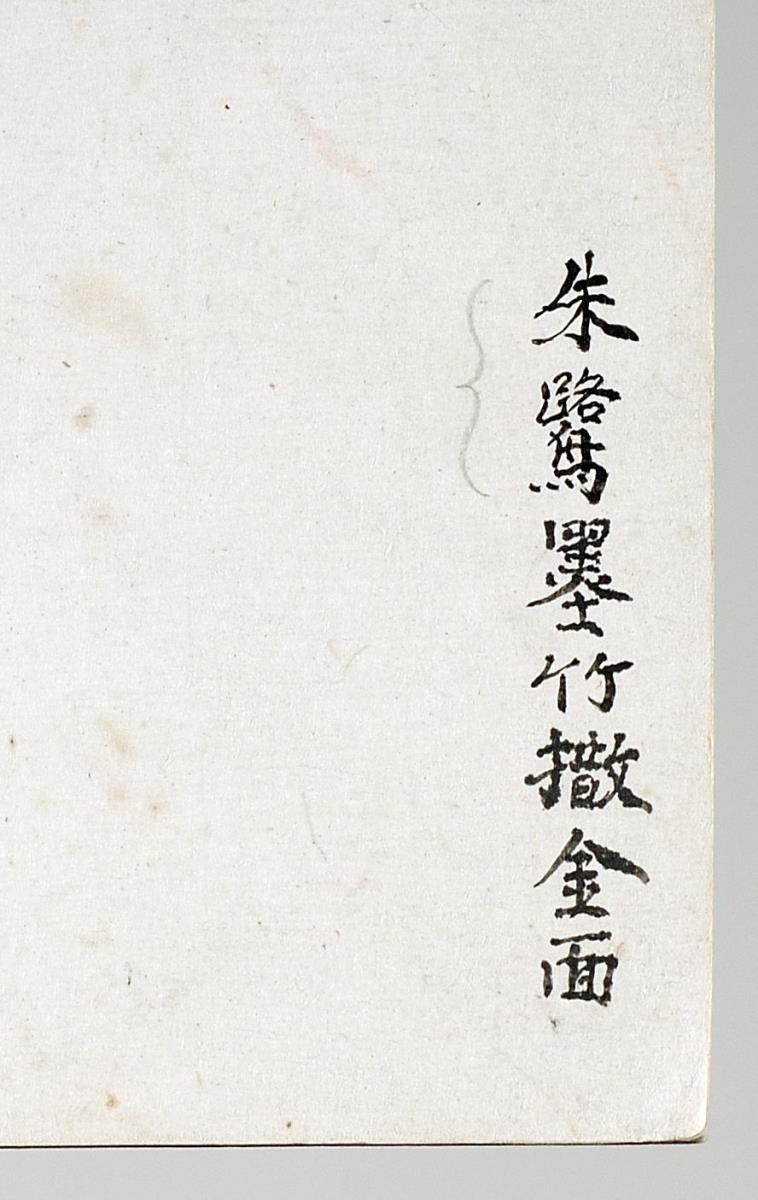 朱鷺墨竹撒金面